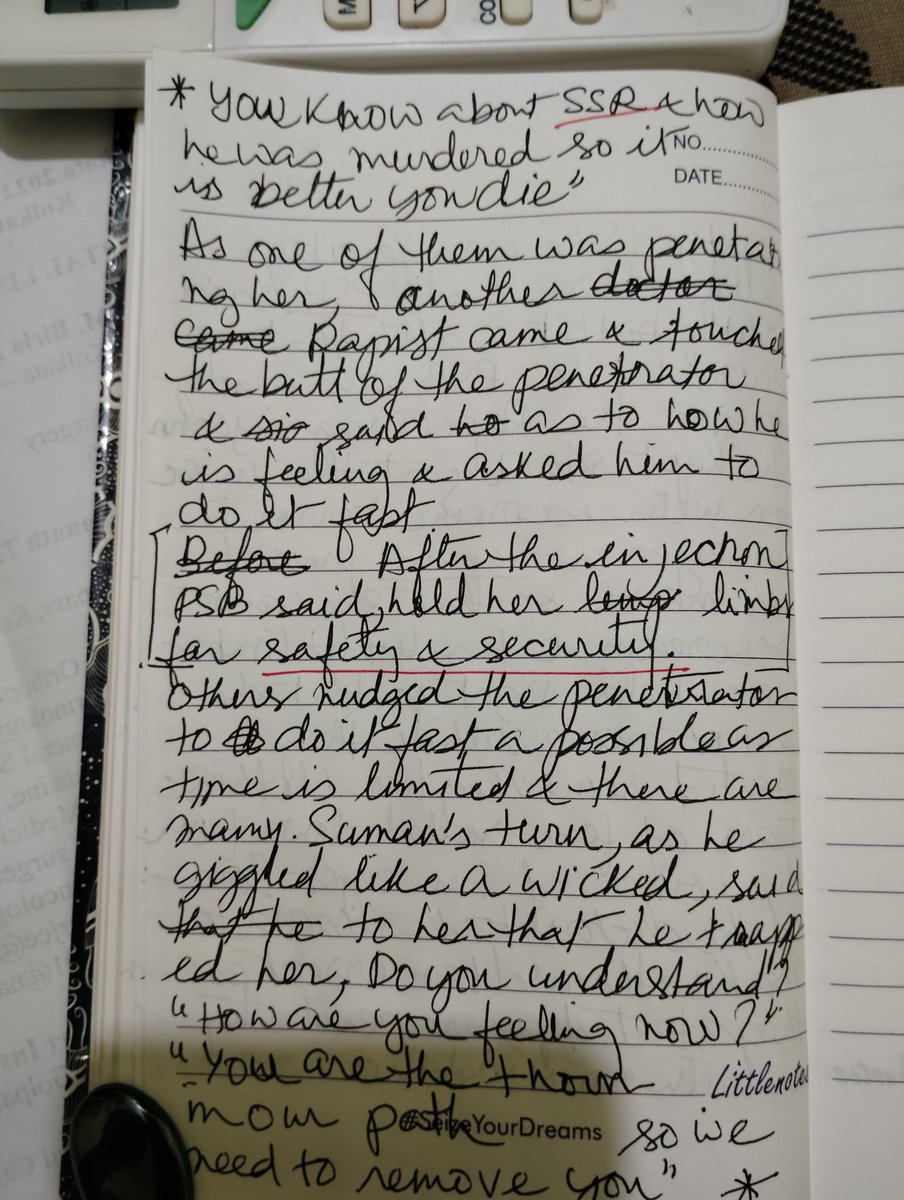 * You know about SSR & how
he was murdered so it
NO.
is better you die"
DATE
As one of them was penetrat
ng her, another doctor
came Rapist came & touched
the butt of the penetrator
& said as to how he
is feeling & asked him to
do it fast
Before After the injection
PSB said, hold her limbs
for safety & security.
Others nudged the penetrator
to do it fast a possible as
time is limited & there are
many. Suman's turn, as he
giggled like a wicked, said
that he to her that, he trapp
ed her, Do you understand"?
"How are you feeling now?"
"You are the thorn
Littlenotes
in our path so we
#SeizeYourDreams
need to remove you" *